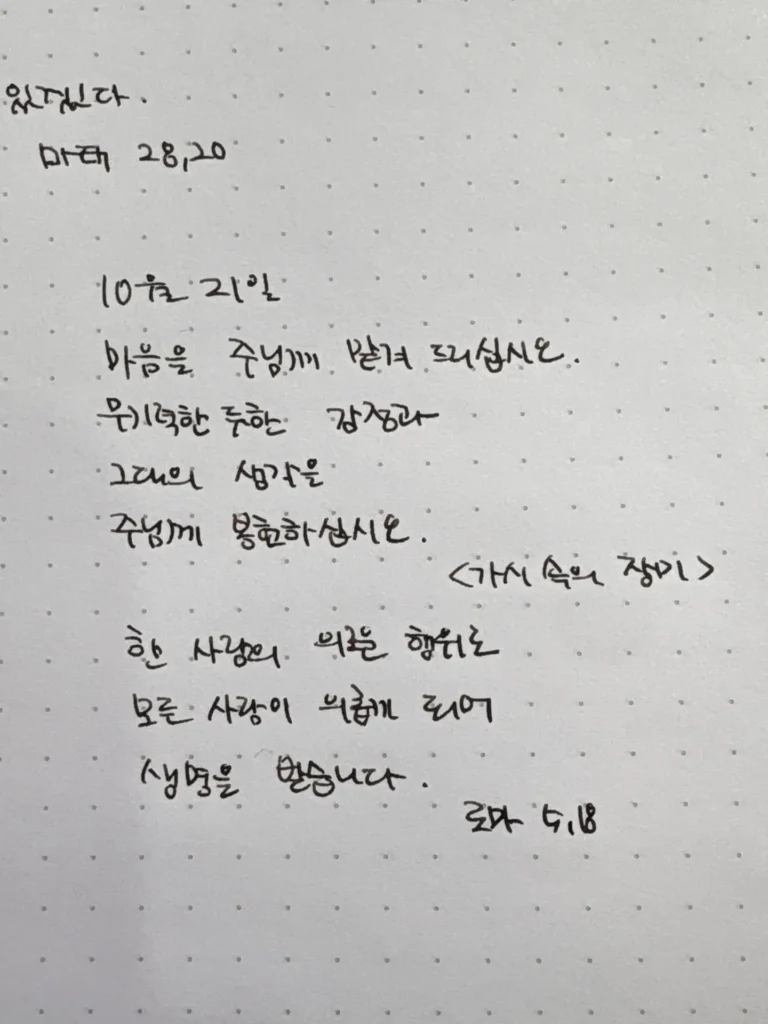 있겠다.
마태 28,20
10월 21일
마음을 주님께 맡겨 드리십시오.
무기력한 두한 감정과
그대의 생각을
주님께 봉헌하십시오.
<가시 속의 장미>
한 사람의 의로운 행위로
모든 사람이 의롭게 되어
생명을 받습니다.
로마 5,18